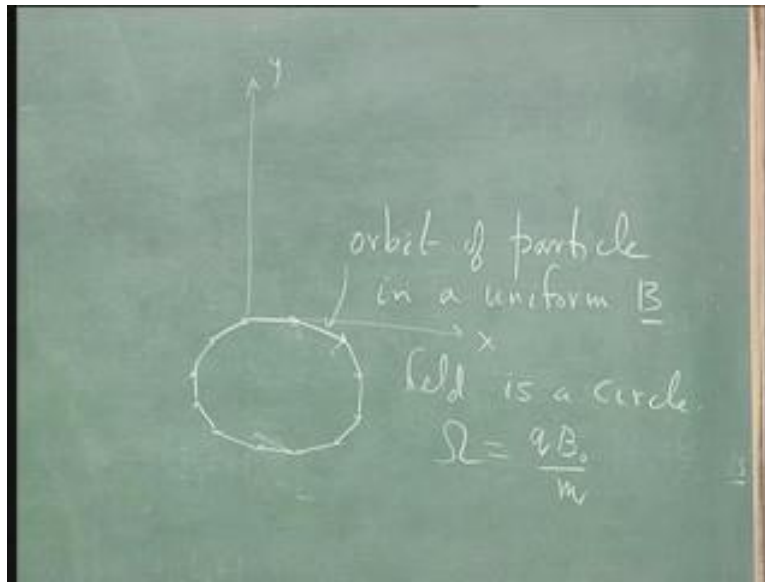 y
orbit of particle
in a uniform B
x
field is a circle.
Ω = qB₀/m